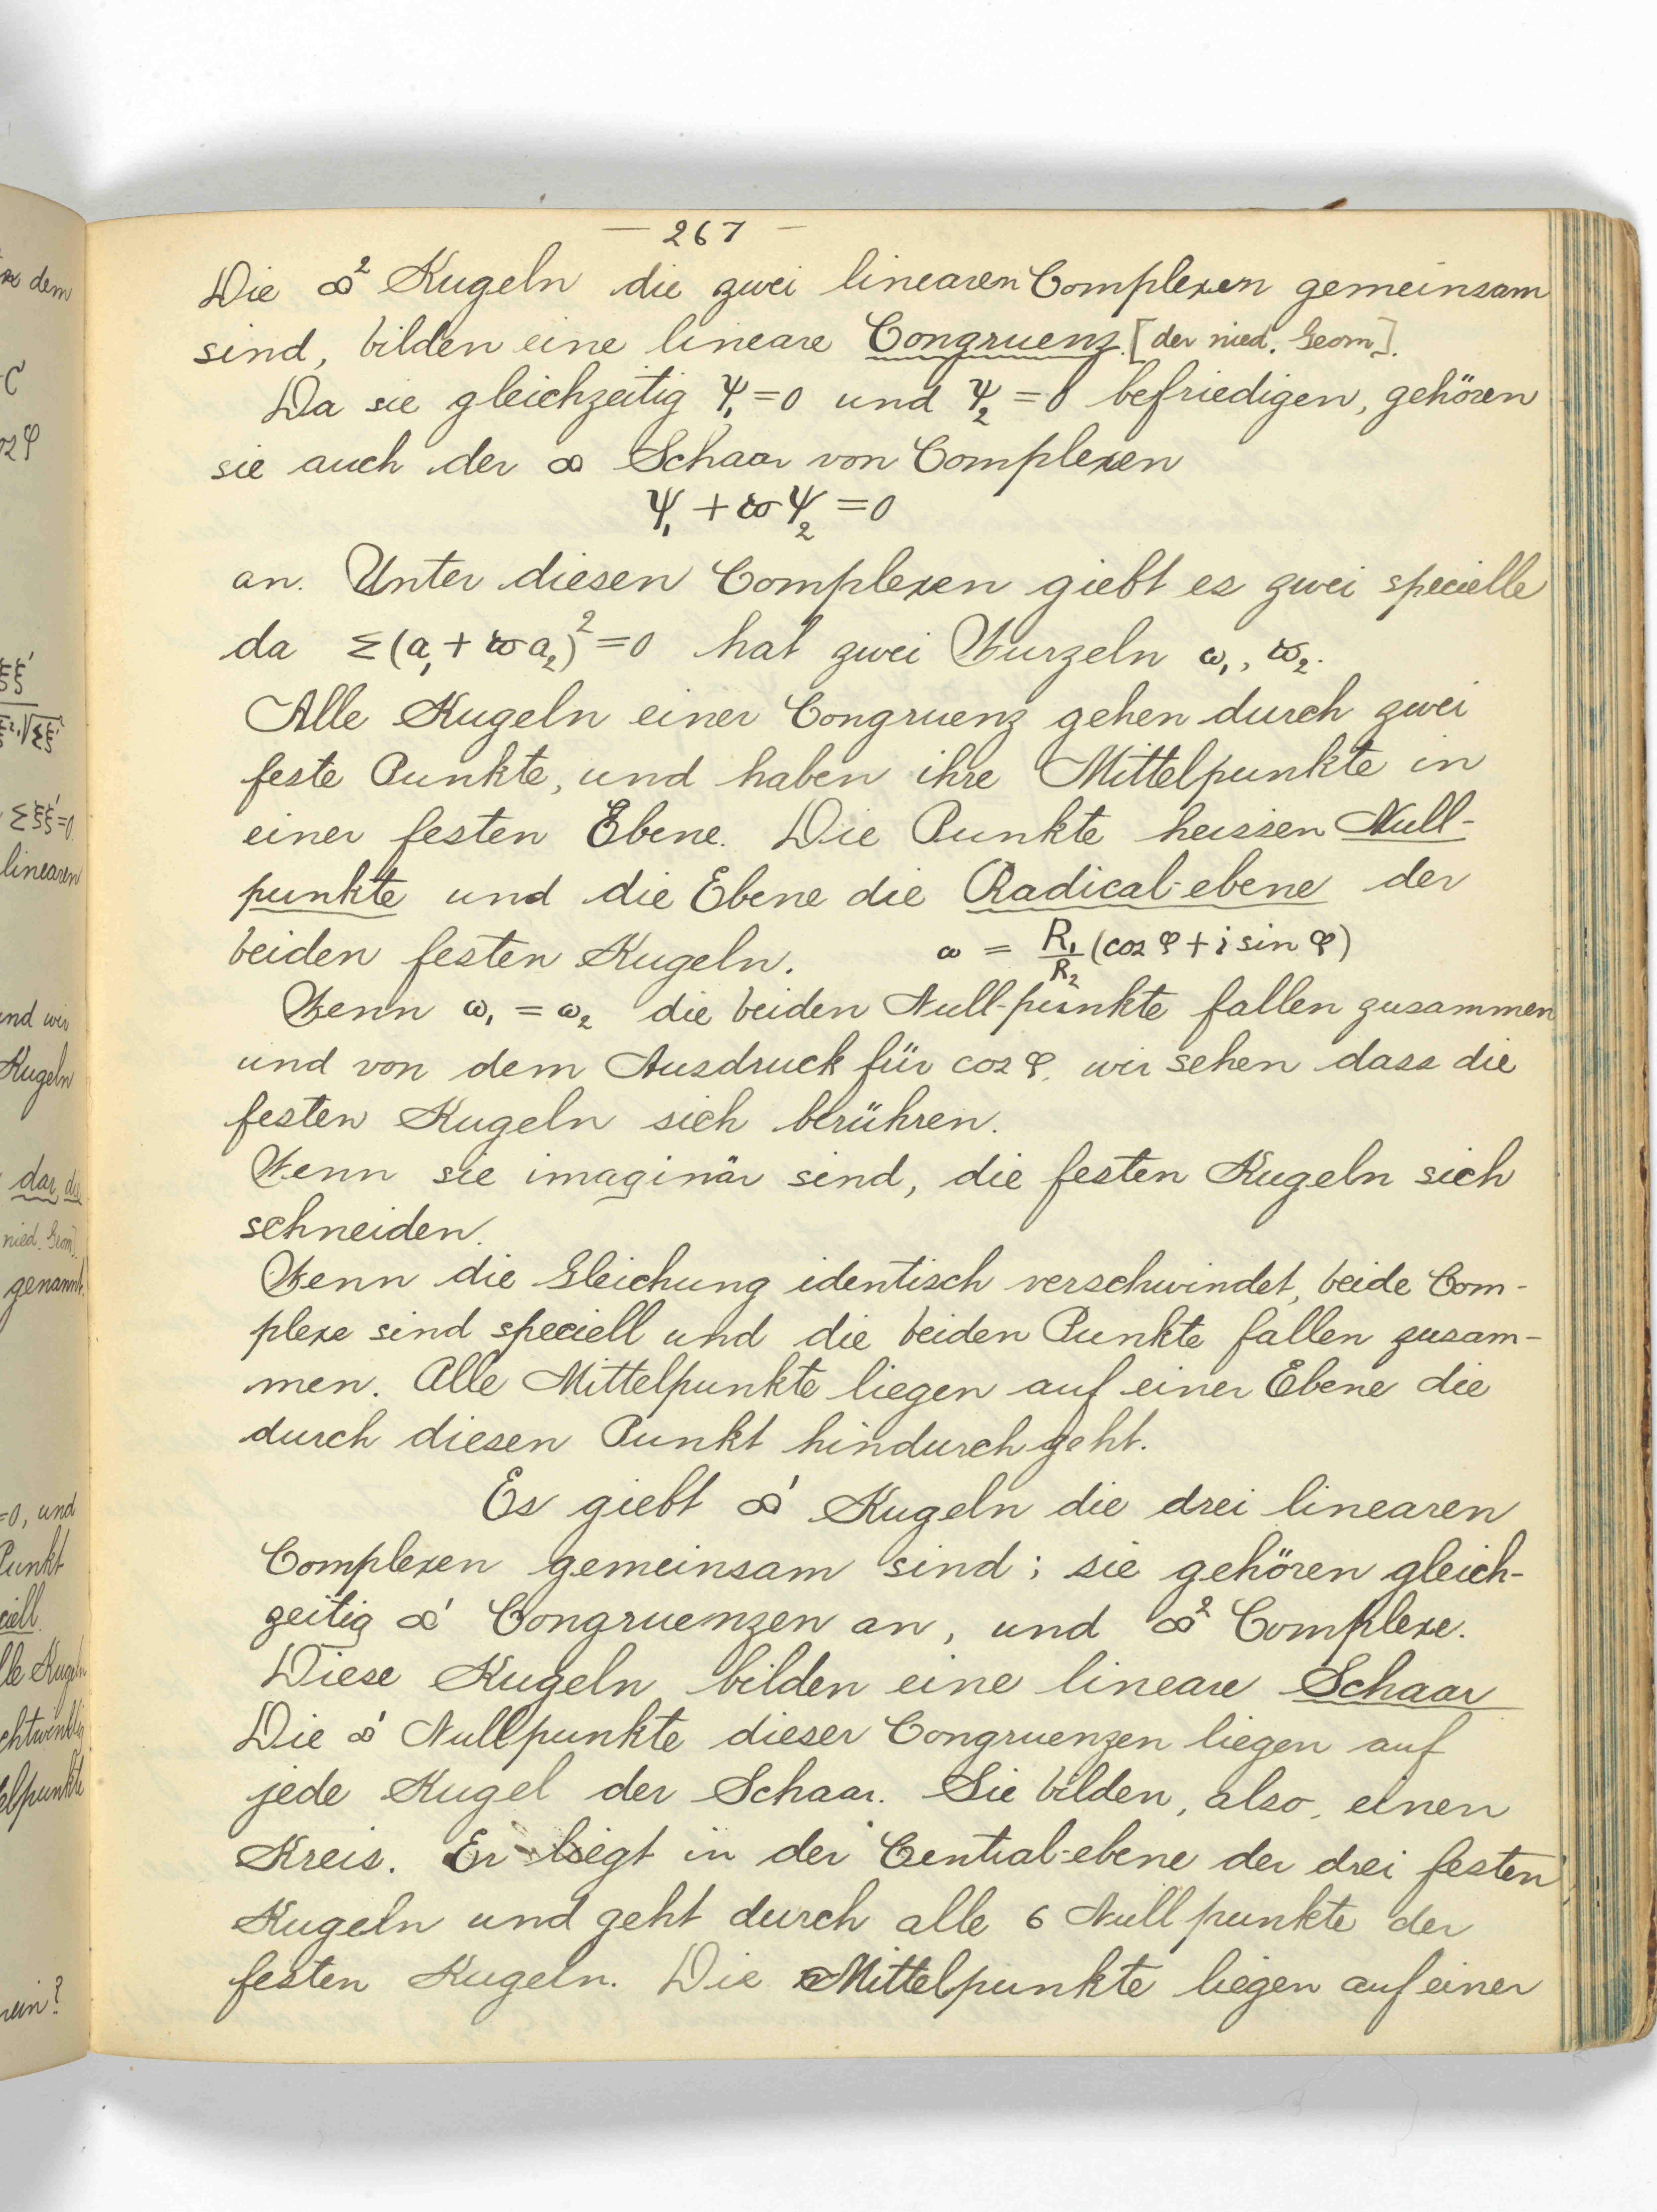 — 267 —
Die ∞² Kugeln die zwei linearen Complexen gemeinsam
sind, bilden eine lineare Congruenz. [der nied. Geom].
Da sie gleichzeitig Ψ₁=0 und Ψ₂=0 befriedigen, gehören
sie auch der ∞ Schaar von Complexen
Ψ₁ + ϖΨ₂ = 0
an. Unter diesen Complexen giebt es zwei specielle
da Σ(a₁+ϖa₂)²=0 hat zwei Wurzeln ω₁, ϖ₂.
Alle Kugeln einer Congruenz gehen durch zwei
feste Punkte, und haben ihre Mittelpunkte in
einer festen Ebene. Die Punkte heissen Null-
punkte und die Ebene die Radical-ebene der
beiden festen Kugeln. ω = R₁/R₂ (cos φ + i sin φ)
Wenn ω₁ = ω₂ die beiden Null-punkte fallen zusammen
und von dem Ausdruck für cos φ, wir sehen dass die
festen Kugeln sich berühren.
Wenn sie imaginär sind, die festen Kugeln sich
schneiden.
Wenn die Gleichung identisch verschwindet, beide Com-
plexe sind speciell und die beiden Punkte fallen zusam-
men. Alle Mittelpunkte liegen auf einer Ebene die
durch diesen Punkt hindurchgeht.
Es giebt ∞' Kugeln die drei linearen
Complexen gemeinsam sind; sie gehören gleich-
zeitig ∞' Congruenzen an, und ∞² Complexe.
Diese Kugeln bilden eine lineare Schaar
Die ∞' Nullpunkte dieser Congruenzen liegen auf
jede Kugel der Schaar. Sie bilden, also, einen
Kreis. Er liegt in der Central-ebene der drei festen
Kugeln und geht durch alle 6 Nullpunkte der
festen Kugeln. Die Mittelpunkte liegen auf einer
dem
C
cos φ
ξξ'
Σξξ'=0
linearen
und wir
Kugeln
dar, die
nied. Geom].
genannt.
=0, und
Punkt
ciell.
lle Kugeln
chtwinklig
elpunkte
ein?